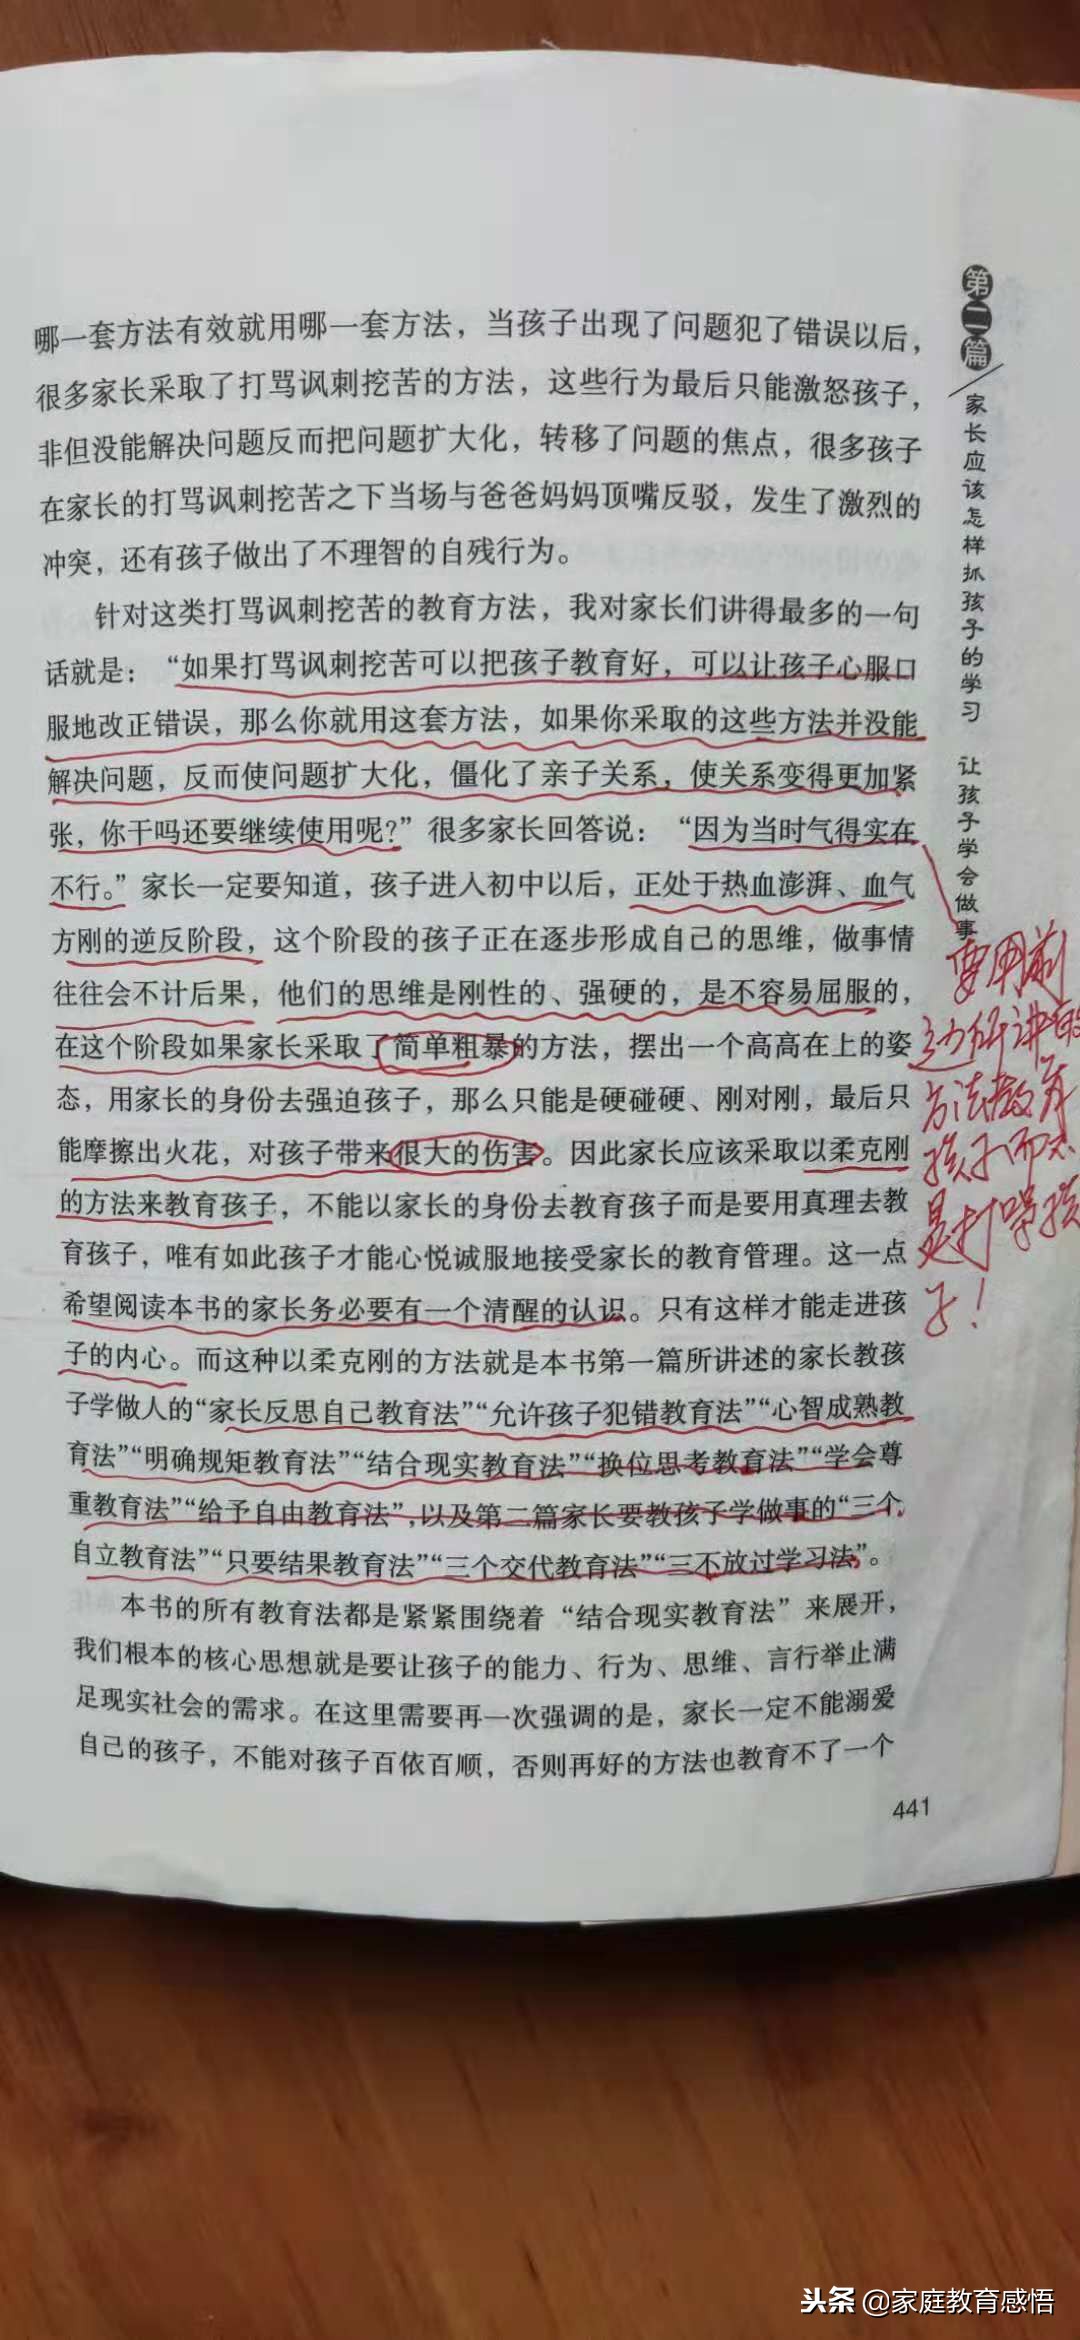 哪一套方法有效就用哪一套方法，当孩子出现了问题犯了错误以后，
很多家长采取了打骂讽刺挖苦的方法，这些行为最后只能激怒孩子，
非但没能解决问题反而把问题扩大化，转移了问题的焦点，很多孩子
在家长的打骂讽刺挖苦之下当场与爸爸妈妈顶嘴反驳，发生了激烈的
冲突，还有孩子做出了不理智的自残行为。
针对这类打骂讽刺挖苦的教育方法，我对家长们讲得最多的一句
话就是：“如果打骂讽刺挖苦可以把孩子教育好，可以让孩子心服口
服地改正错误，那么你就用这套方法，如果你采取的这些方法并没能
解决问题，反而使问题扩大化，僵化了亲子关系，使关系变得更加紧
张，你干吗还要继续使用呢?”很多家长回答说：“因为当时气得实在
不行。”家长一定要知道，孩子进入初中以后，正处于热血澎湃、血气
方刚的逆反阶段，这个阶段的孩子正在逐步形成自己的思维，做事情
往往会不计后果，他们的思维是刚性的、强硬的，是不容易屈服的，
在这个阶段如果家长采取了简单粗暴的方法，摆出一个高高在上的姿
态，用家长的身份去强迫孩子，那么只能是硬碰硬、刚对刚，最后只
能摩擦出火花，对孩子带来很大的伤害。因此家长应该采取以柔克刚
的方法来教育孩子，不能以家长的身份去教育孩子而是要用真理去教
育孩子，唯有如此孩子才能心悦诚服地接受家长的教育管理。这一点
希望阅读本书的家长务必要有一个清醒的认识。只有这样才能走进孩
子的内心。而这种以柔克刚的方法就是本书第一篇所讲述的家长教孩
子学做人的“家长反思自己教育法”“允许孩子犯错教育法”“心智成熟教
育法”“明确规矩教育法”“结合现实教育法”“换位思考教育法”“学会尊
重教育法”“给予自由教育法”,以及第二篇家长要教孩子学做事的“三个
自立教育法”“只要结果教育法”“三个交代教育法”“三不放过学习法”。
本书的所有教育法都是紧紧围绕着“结合现实教育法”来展开，
我们根本的核心思想就是要让孩子的能力、行为、思维、言行举止满
足现实社会的需求。在这里需要再一次强调的是，家长一定不能溺爱
自己的孩子，不能对孩子百依百顺，否则再好的方法也教育不了一个
441
第二篇
家长应该怎样抓孩子的学习 让孩子学会做事
要用前
边所讲的
方法教育
孩子而不
是打骂孩
子！
头条 @家庭教育感悟